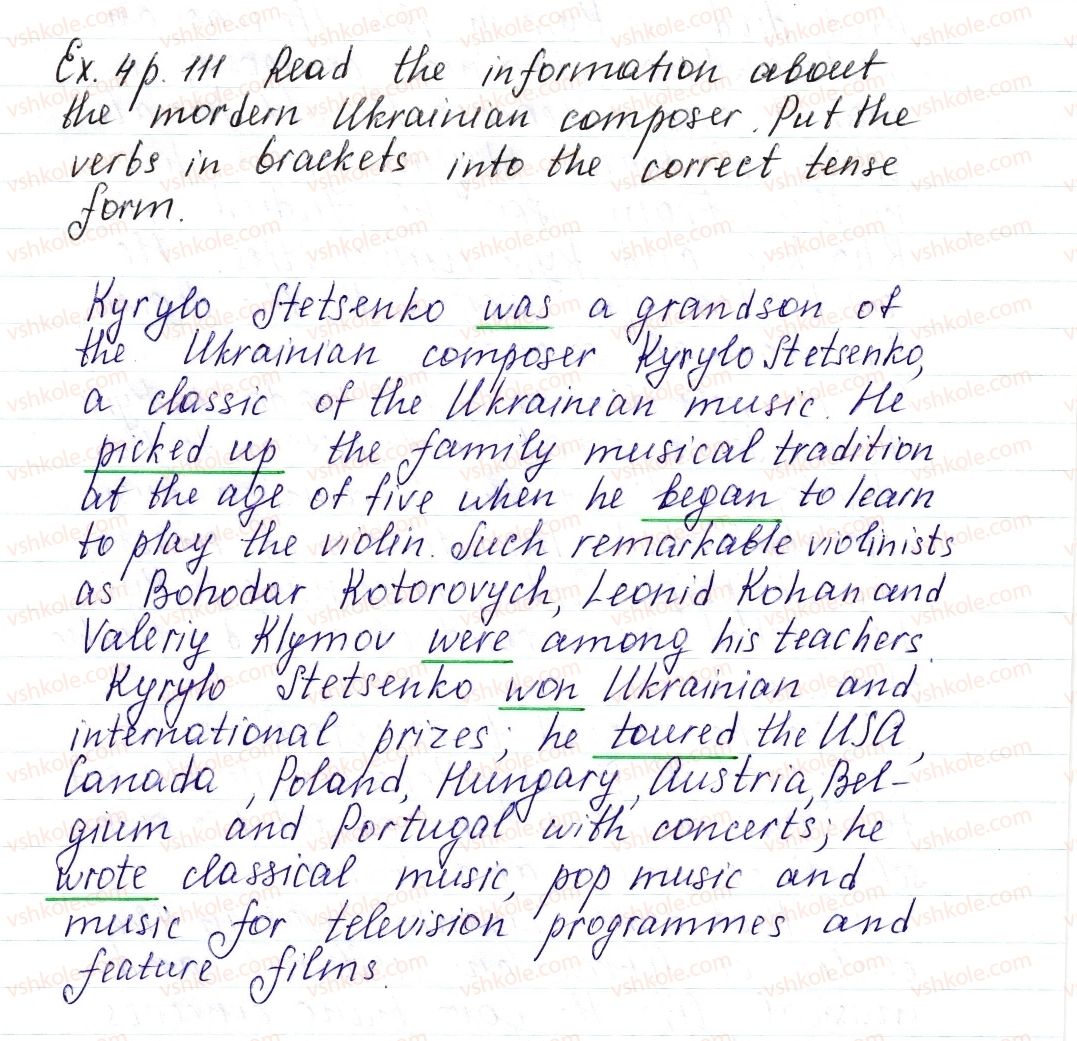 Ex. 4 p. 111 Read the information about
the mordern Ukrainian composer. Put the
verbs in brackets into the correct tense
form.
Kyrylo Stetsenko was a grandson of
the Ukrainian composer Kyrylo Stetsenko,
a classic of the Ukrainian music. He
picked up the family musical tradition
at the age of five when he began to learn
to play the violin. Such remarkable violinists
as Bohodar Kotorovych, Leonid Kohan and
Valeriy Klymov were among his teachers.
Kyrylo Stetsenko won Ukrainian and
international prizes; he toured the USA,
Canada, Poland, Hungary, Austria, Bel-
gium and Portugal with concerts; he
wrote classical music, pop music and
music for television programmes and
feature films.